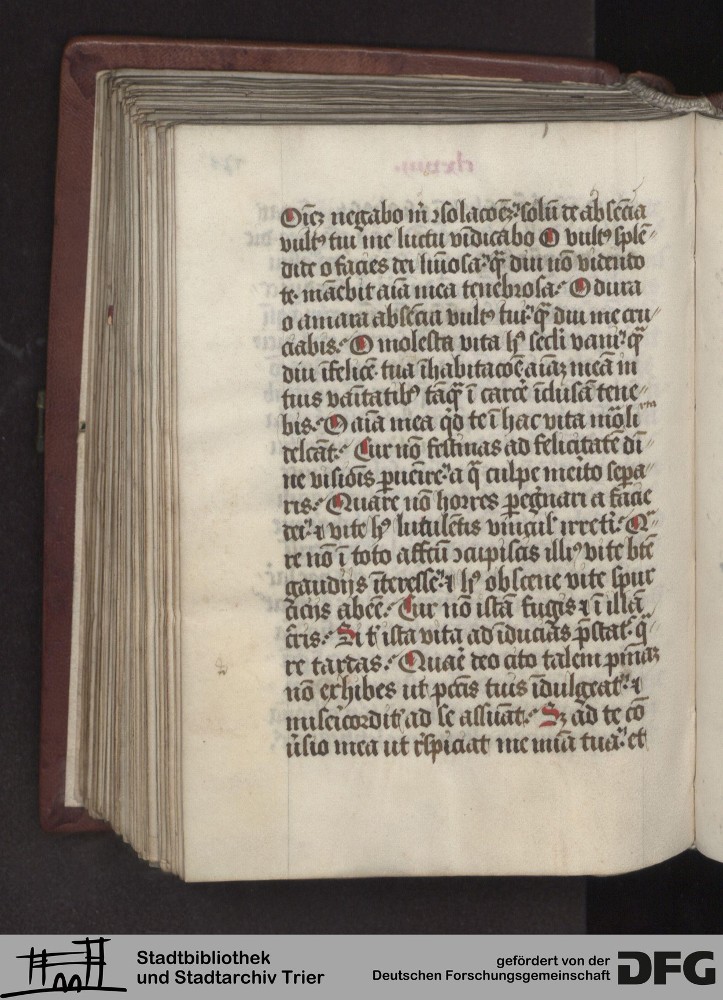 Oīez negabo m̄ ɔsolacōez solū de absēcia
vultꝰ tui me luctu vīdicabo O vultꝰ splē
dide o facies dei lūiosa q̄ diu nō videndo
te manebit aīa mea tenebrosa O dura
o amara absēcia vultꝰ tui q̄ diu me cru
ciabis O molesta vita hꝰ secli vani q̄
diu īfelicē tua īhabitacōe aīaz meā in
tuis vanitatibꝰ tāq̄ ī carcē īclusā tene
bis O aīa mea qd te ī hac vita
delcāt Cur nō festinas ad felicitatē di
ne visiōis puēire a q̄ culpe meito sepa
ris Quare nō horres peḡnari a facie
dei ⁊ vite hꝰ lutulētis irreti Q
re nō ī toto affcū ɔcupiscis illiꝰ vite btē
gaudijs īteresse ⁊ hꝰ obscene vite spur
cicijs abēē Cur nō istā fugis ⁊ ī illā
Si t ista vita ad īducias p̄stat q̄
re tardas Quaē deo cito talem pm̄az
nō exhibes ut pcc̄is tuis īdulgeat ⁊
miseicordit ad se assumat Sz ad te cō
ūsio mea ut rs̄piciat me mīa tua et
Stadtbibliothek
und Stadtarchiv Trier
gefördert von der
Deutschen Forschungsgemeinschaft
DFG